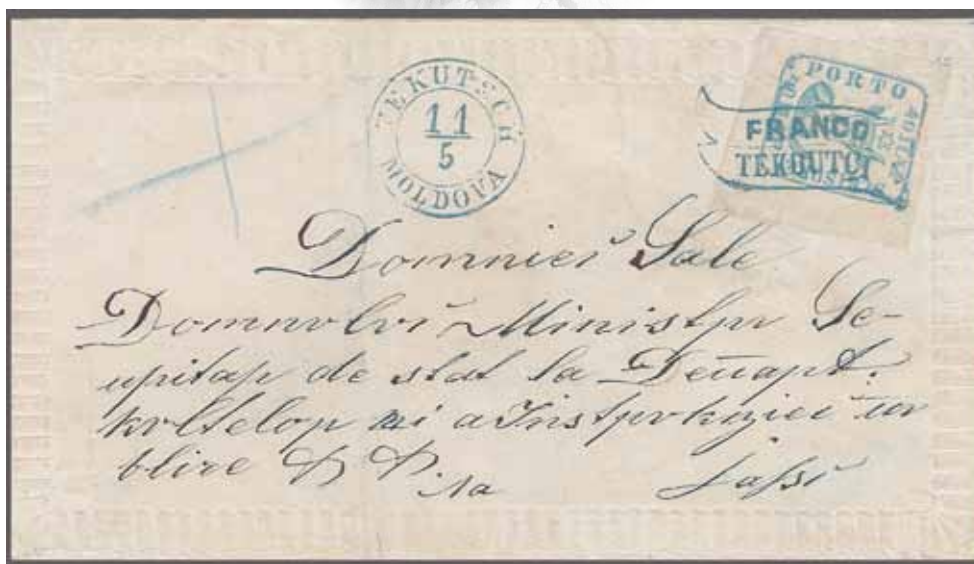 TEKUTSCH
11
5
MOLDOVA
PORTO
FRANCO
TEKOUTCI
Domnieĭ Sale
Domnvlvĭ Ministpv Se-
de stat la Depapt.
kvltelop ши a Instpvkцieĭ пv
bliче
la Jassi